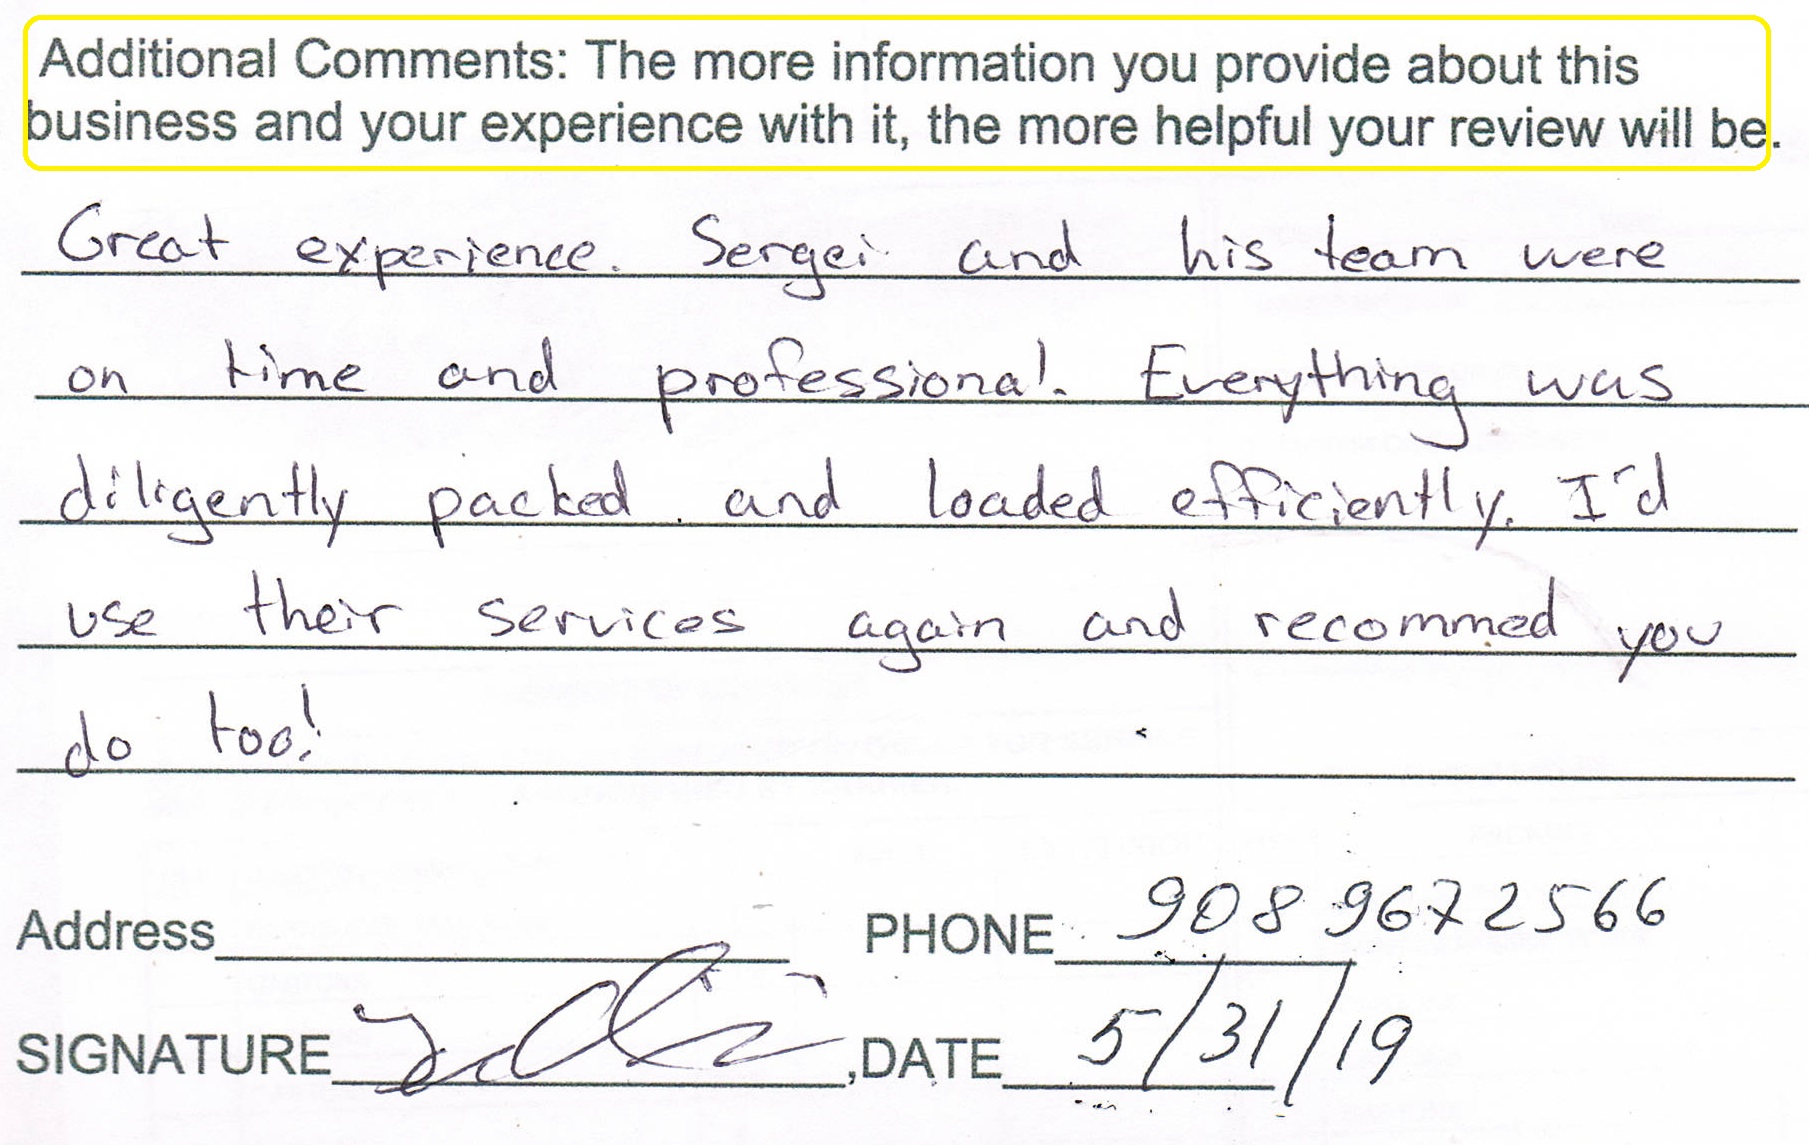 Additional Comments: The more information you provide about this
business and your experience with it, the more helpful your review will be.
Great experience. Sergei and his team were
on time and professional. Everything was
diligently packed and loaded efficiently. I'd
use their services again and recommed you
do too!
Address PHONE 908 9672566
SIGNATURE , DATE 5/31/19